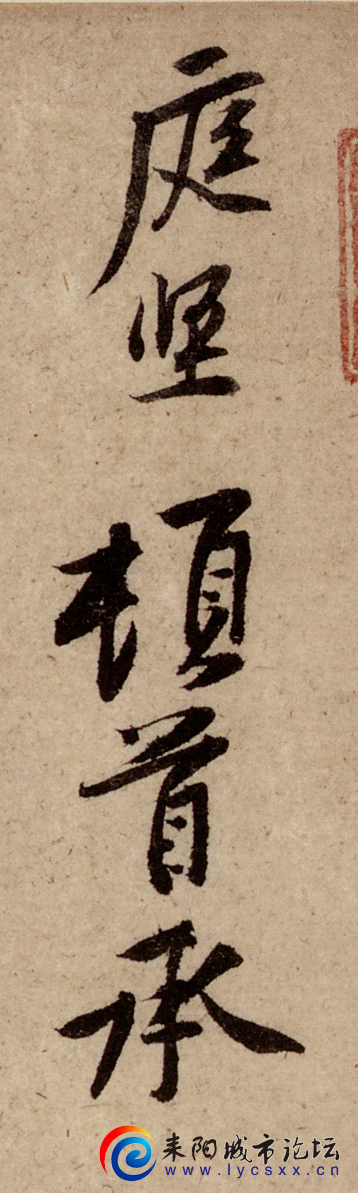 庭坚顿首承
耒阳城市论坛
www.lycsxx.cn